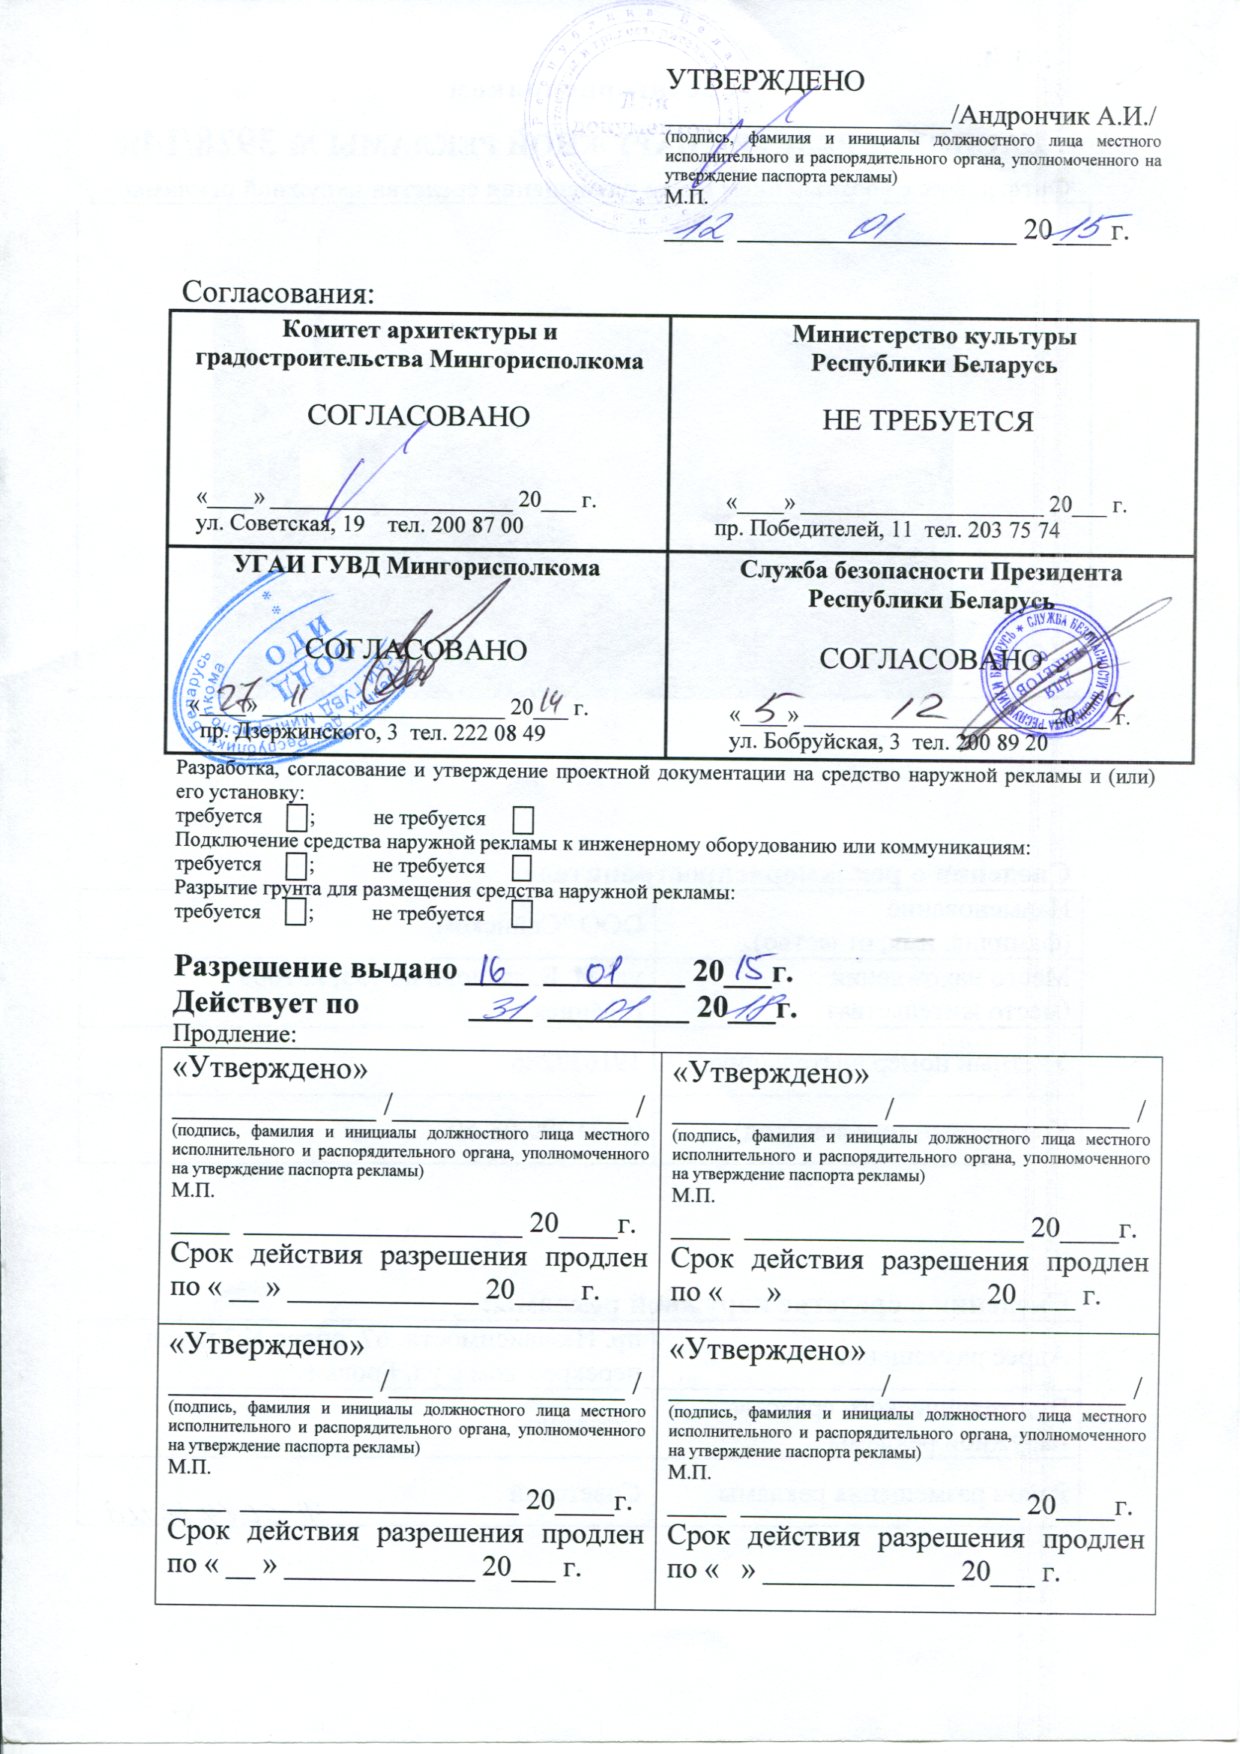 УТВЕРЖДЕНО
____________________/Андрончик А.И./
(подпись, фамилия и инициалы должностного лица местного
исполнительного и распорядительного органа, уполномоченного на
утверждение паспорта рекламы)
М.П.
12 01 2015г.
Согласования:
Комитет архитектуры и
градостроительства Мингорисполкома
СОГЛАСОВАНО
«____» ____________________ 20___ г.
ул. Советская, 19 тел. 200 87 00
Министерство культуры
Республики Беларусь
НЕ ТРЕБУЕТСЯ
«____» ____________________ 20___ г.
пр. Победителей, 11 тел. 203 75 74
УГАИ ГУВД Мингорисполкома
СОГЛАСОВАНО
«27» 11 2014 г.
пр. Дзержинского, 3 тел. 222 08 49
Служба безопасности Президента
Республики Беларусь
СОГЛАСОВАНО
«5» 12 20 4 г.
ул. Бобруйская, 3 тел. 200 89 20
Разработка, согласование и утверждение проектной документации на средство наружной рекламы и (или)
его установку:
требуется ; не требуется
Подключение средства наружной рекламы к инженерному оборудованию или коммуникациям:
требуется ; не требуется
Разрытие грунта для размещения средства наружной рекламы:
требуется ; не требуется
Разрешение выдано 16 01 2015г.
Действует по 31 01 2018г.
Продление:
«Утверждено»
______________ /________________ /
(подпись, фамилия и инициалы должностного лица местного
исполнительного и распорядительного органа, уполномоченного
на утверждение паспорта рекламы)
М.П.
____ ___________________ 20____г.
Срок действия разрешения продлен
по « __ » _____________ 20____ г.
«Утверждено»
____________ /________________ /
(подпись, фамилия и инициалы должностного лица местного
исполнительного и распорядительного органа, уполномоченного
на утверждение паспорта рекламы)
М.П.
____ ___________________ 20____г.
Срок действия разрешения продлен
по « __ » _____________ 20____ г.
«Утверждено»
______________ /________________ /
(подпись, фамилия и инициалы должностного лица местного
исполнительного и распорядительного органа, уполномоченного
на утверждение паспорта рекламы)
М.П.
____ ___________________ 20____г.
Срок действия разрешения продлен
по « __ » _____________ 20___ г.
«Утверждено»
______________ /________________ /
(подпись, фамилия и инициалы должностного лица местного
исполнительного и распорядительного органа, уполномоченного
на утверждение паспорта рекламы)
М.П.
____ ___________________ 20____г.
Срок действия разрешения продлен
по « » _____________ 20___ г.